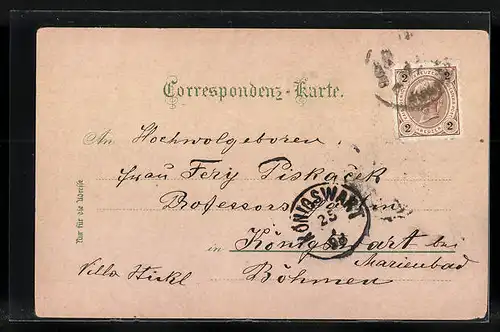 Correspondenz-Karte.
2 KREUZER 2
An Hochwolgeboren
Frau Fery Piskaçek
Professors
KÖNIGSWART
25
in Königswart bei
Marienbad
Villa Stickl Böhmen
Nur für die Adresse